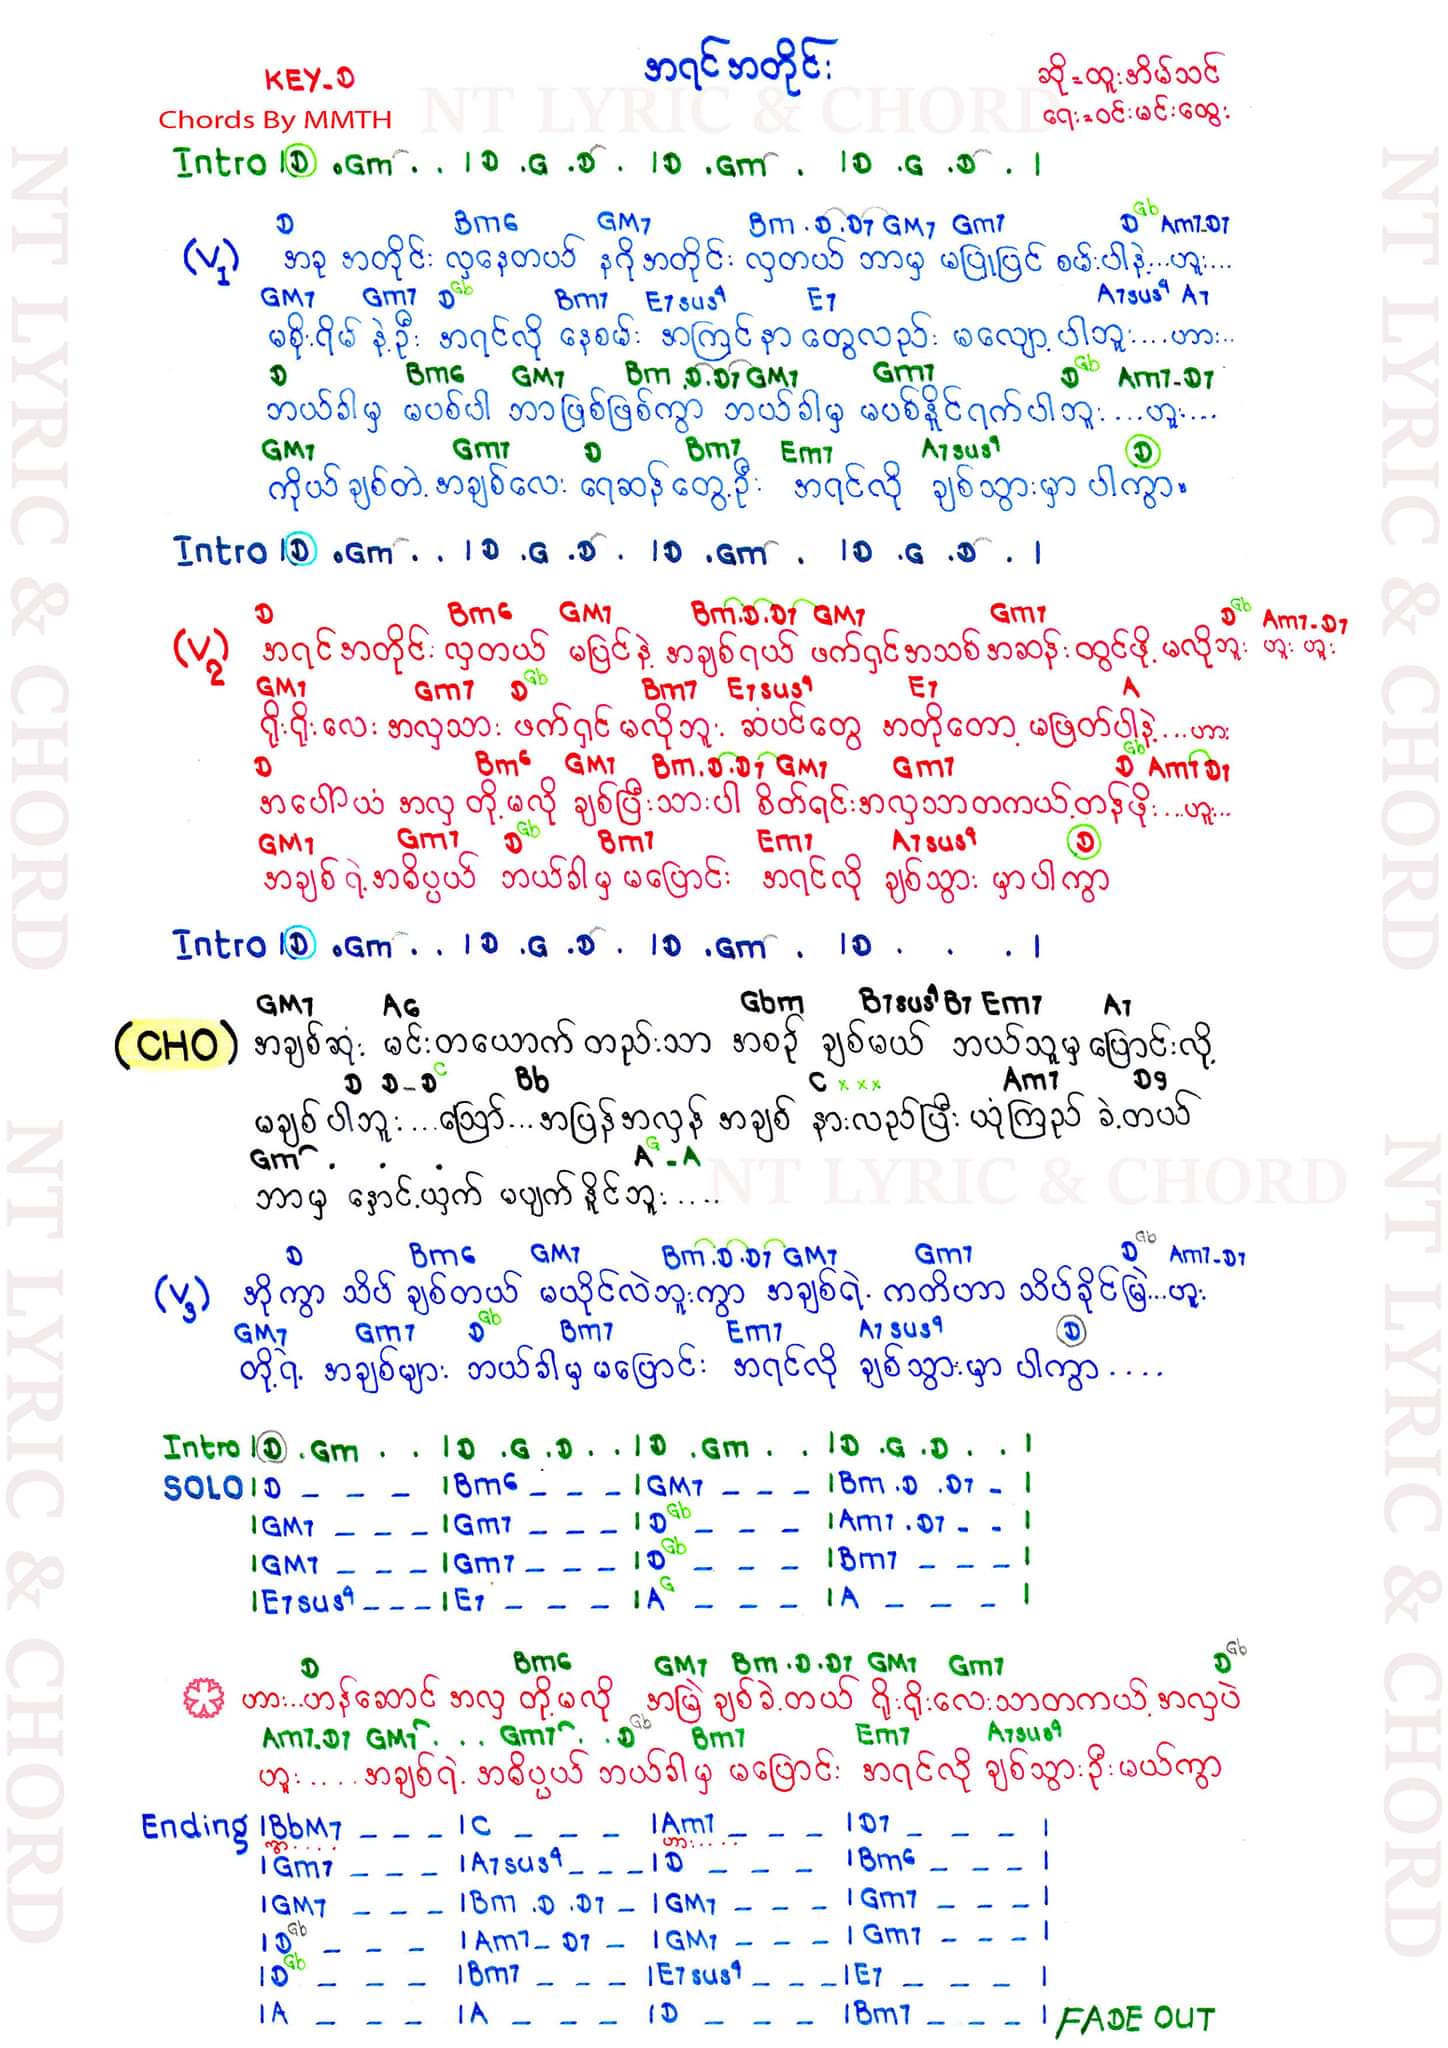 အရင်အတိုင်း
KEY-D
ဆို=ထူးအိမ်သင်
Chords By MMTH
ရေး=ဝင်းမင်းထွေး
NT LYRIC & CHORD
Intro |D .Gm . . |D .G .D . |D .Gm . |D .G .D . |
D Bm6 GM7 Bm.D.D7 GM7 Gm7 D Gb Am7-D7
(V1) အခု အတိုင်း လှနေတယ် နဂိုအတိုင်း လှတယ် ဘာမှ မပြုပြင် စမ်းပါနဲ့...ဟူး...
GM7 Gm7 D Gb Bm7 E7sus4 E7 A7sus4 A7
မစိုးရိမ် နဲ့ဦး အရင်လို နေစမ်း အကြင်နာ တွေလည်း မလျော့ ပါဘူး....ဟား..
D Bm6 GM7 Bm.D.D7 GM7 Gm7 D Gb Am7-D7
ဘယ်ခါမှ မပစ်ပါ ဘာဖြစ်ဖြစ်ကွာ ဘယ်ခါမှ မပစ်နိူင်ရက်ပါဘူး....ဟူး....
GM7 Gm7 D Bm7 Em7 A7sus4 D
ကိုယ်ချစ်တဲ့ အချစ်လေး ရေဆန်တွေ့ဦး အရင်လို ချစ်သွားမှာ ပါကွာ။
Intro |D .Gm . . |D .G .D . |D .Gm . |D .G .D . |
D Bm6 GM7 Bm.D.D7 GM7 Gm7 D Gb Am7-D7
(V2) အရင်အတိုင်း လှတယ် မပြင်နဲ့ အချစ်ရယ် ဖက်ရှင်အသစ်အဆန်းထွင်ဖို့ မလိုဘူး ဟူး ဟူး
GM7 Gm7 D Gb Bm7 E7sus4 E7 A
ရိုးရိုးလေး အလှသား ဖက်ရှင်မလိုဘူး ဆံပင်တွေ အတိုတော့ မဖြတ်ပါနဲ့....ဟား
D Bm6 GM7 Bm.D.D7 GM7 Gm7 D Gb Am7 D7
အပေါ်ယံ အလှ တို့မလို ချစ်ပြီးသားပါ စိတ်ရင်းအလှသာတကယ့်တန်ဖိုး....ဟူး...
GM7 Gm7 D Gb Bm7 Em7 A7sus4 D
အချစ်ရဲ့အဓိပ္ပယ် ဘယ်ခါမှ မပြောင်း အရင်လို ချစ်သွား မှာပါကွာ
Intro |D .Gm . . |D .G .D . |D .Gm . |D . . . |
GM7 A6 Gbm B7sus4 B7 Em7 A7
(CHO) အချစ်ဆုံး မင်းတယောက်တည်းသာ အစဉ် ချစ်မယ် ဘယ်သူမှ ပြောင်းလို့
D D-D C Bb C x x x Am7 D9
မချစ်ပါဘူး...သြော်...အပြန်အလှန် အချစ် နားလည်ပြီး ယုံကြည် ခဲ့တယ်
Gm . . . A G -A
NT LYRIC & CHORD
ဘာမှ နှောင့်ယှက် မပျက်နိူင်ဘူး....
D Bm6 GM7 Bm.D.D7 GM7 Gm7 D Gb Am7-D7
(V3) အိုကွာ သိပ်ချစ်တယ် မယိုင်လဲဘူးကွာ အချစ်ရဲ့ ကတိဟာ သိပ်ခိုင်မြဲ...ဟူး
GM7 Gm7 D Gb Bm7 Em7 A7sus4 D
တို့ရဲ့ အချစ်များ ဘယ်ခါမှ မပြောင်း အရင်လို ချစ်သွားမှာ ပါကွာ....
Intro |D .Gm . . |D .G .D . . |D .Gm . . |D .G .D . . |
SOLO |D _ _ _ |Bm6 _ _ _ |GM7 _ _ _ |Bm .D .D7 _ |
|GM7 _ _ _ |Gm7 _ _ _ |D Gb _ _ _ |Am7 .D7 _ _ |
|GM7 _ _ _ |Gm7 _ _ _ |D Gb _ _ _ |Bm7 _ _ _ |
|E7sus4 _ _ _ |E7 _ _ _ |A G _ _ _ |A _ _ _ |
D Bm6 GM7 Bm.D.D7 GM7 Gm7 D Gb
ဟား...ဟန်ဆောင် အလှ တို့မလို အမြဲချစ်ခဲ့တယ် ရိုးရိုးလေးသာတကယ့် အလှပဲ
Am7.D7 GM7 . . . Gm7 . . D Gb Bm7 Em7 A7sus4
ဟူး.... အချစ်ရဲ့ အဓိပ္ပယ် ဘယ်ခါမှ မပြောင်း အရင်လို ချစ်သွားဦးမယ်ကွာ
Ending |BbM7 _ _ _ |C _ _ _ |Am7 _ _ _ |D7 _ _ _ |
ဟား.....
|Gm7 _ _ _ |A7sus4 _ _ _ |D _ _ _ |Bm6 _ _ _ |
|GM7 _ _ _ |Bm .D .D7 _ |GM7 _ _ _ |Gm7 _ _ _ |
|D Gb _ _ _ |Am7_ D7 _ |GM7 _ _ _ |Gm7 _ _ _ |
|D Gb _ _ _ |Bm7 _ _ _ |E7sus4 _ _ _ |E7 _ _ _ |
|A _ _ _ |A _ _ _ |D _ _ _ |Bm7 _ _ _ | FADE OUT
NT LYRIC & CHORD
NT LYRIC & CHORD
NT LYRIC & CHORD
NT LYRIC & CHORD